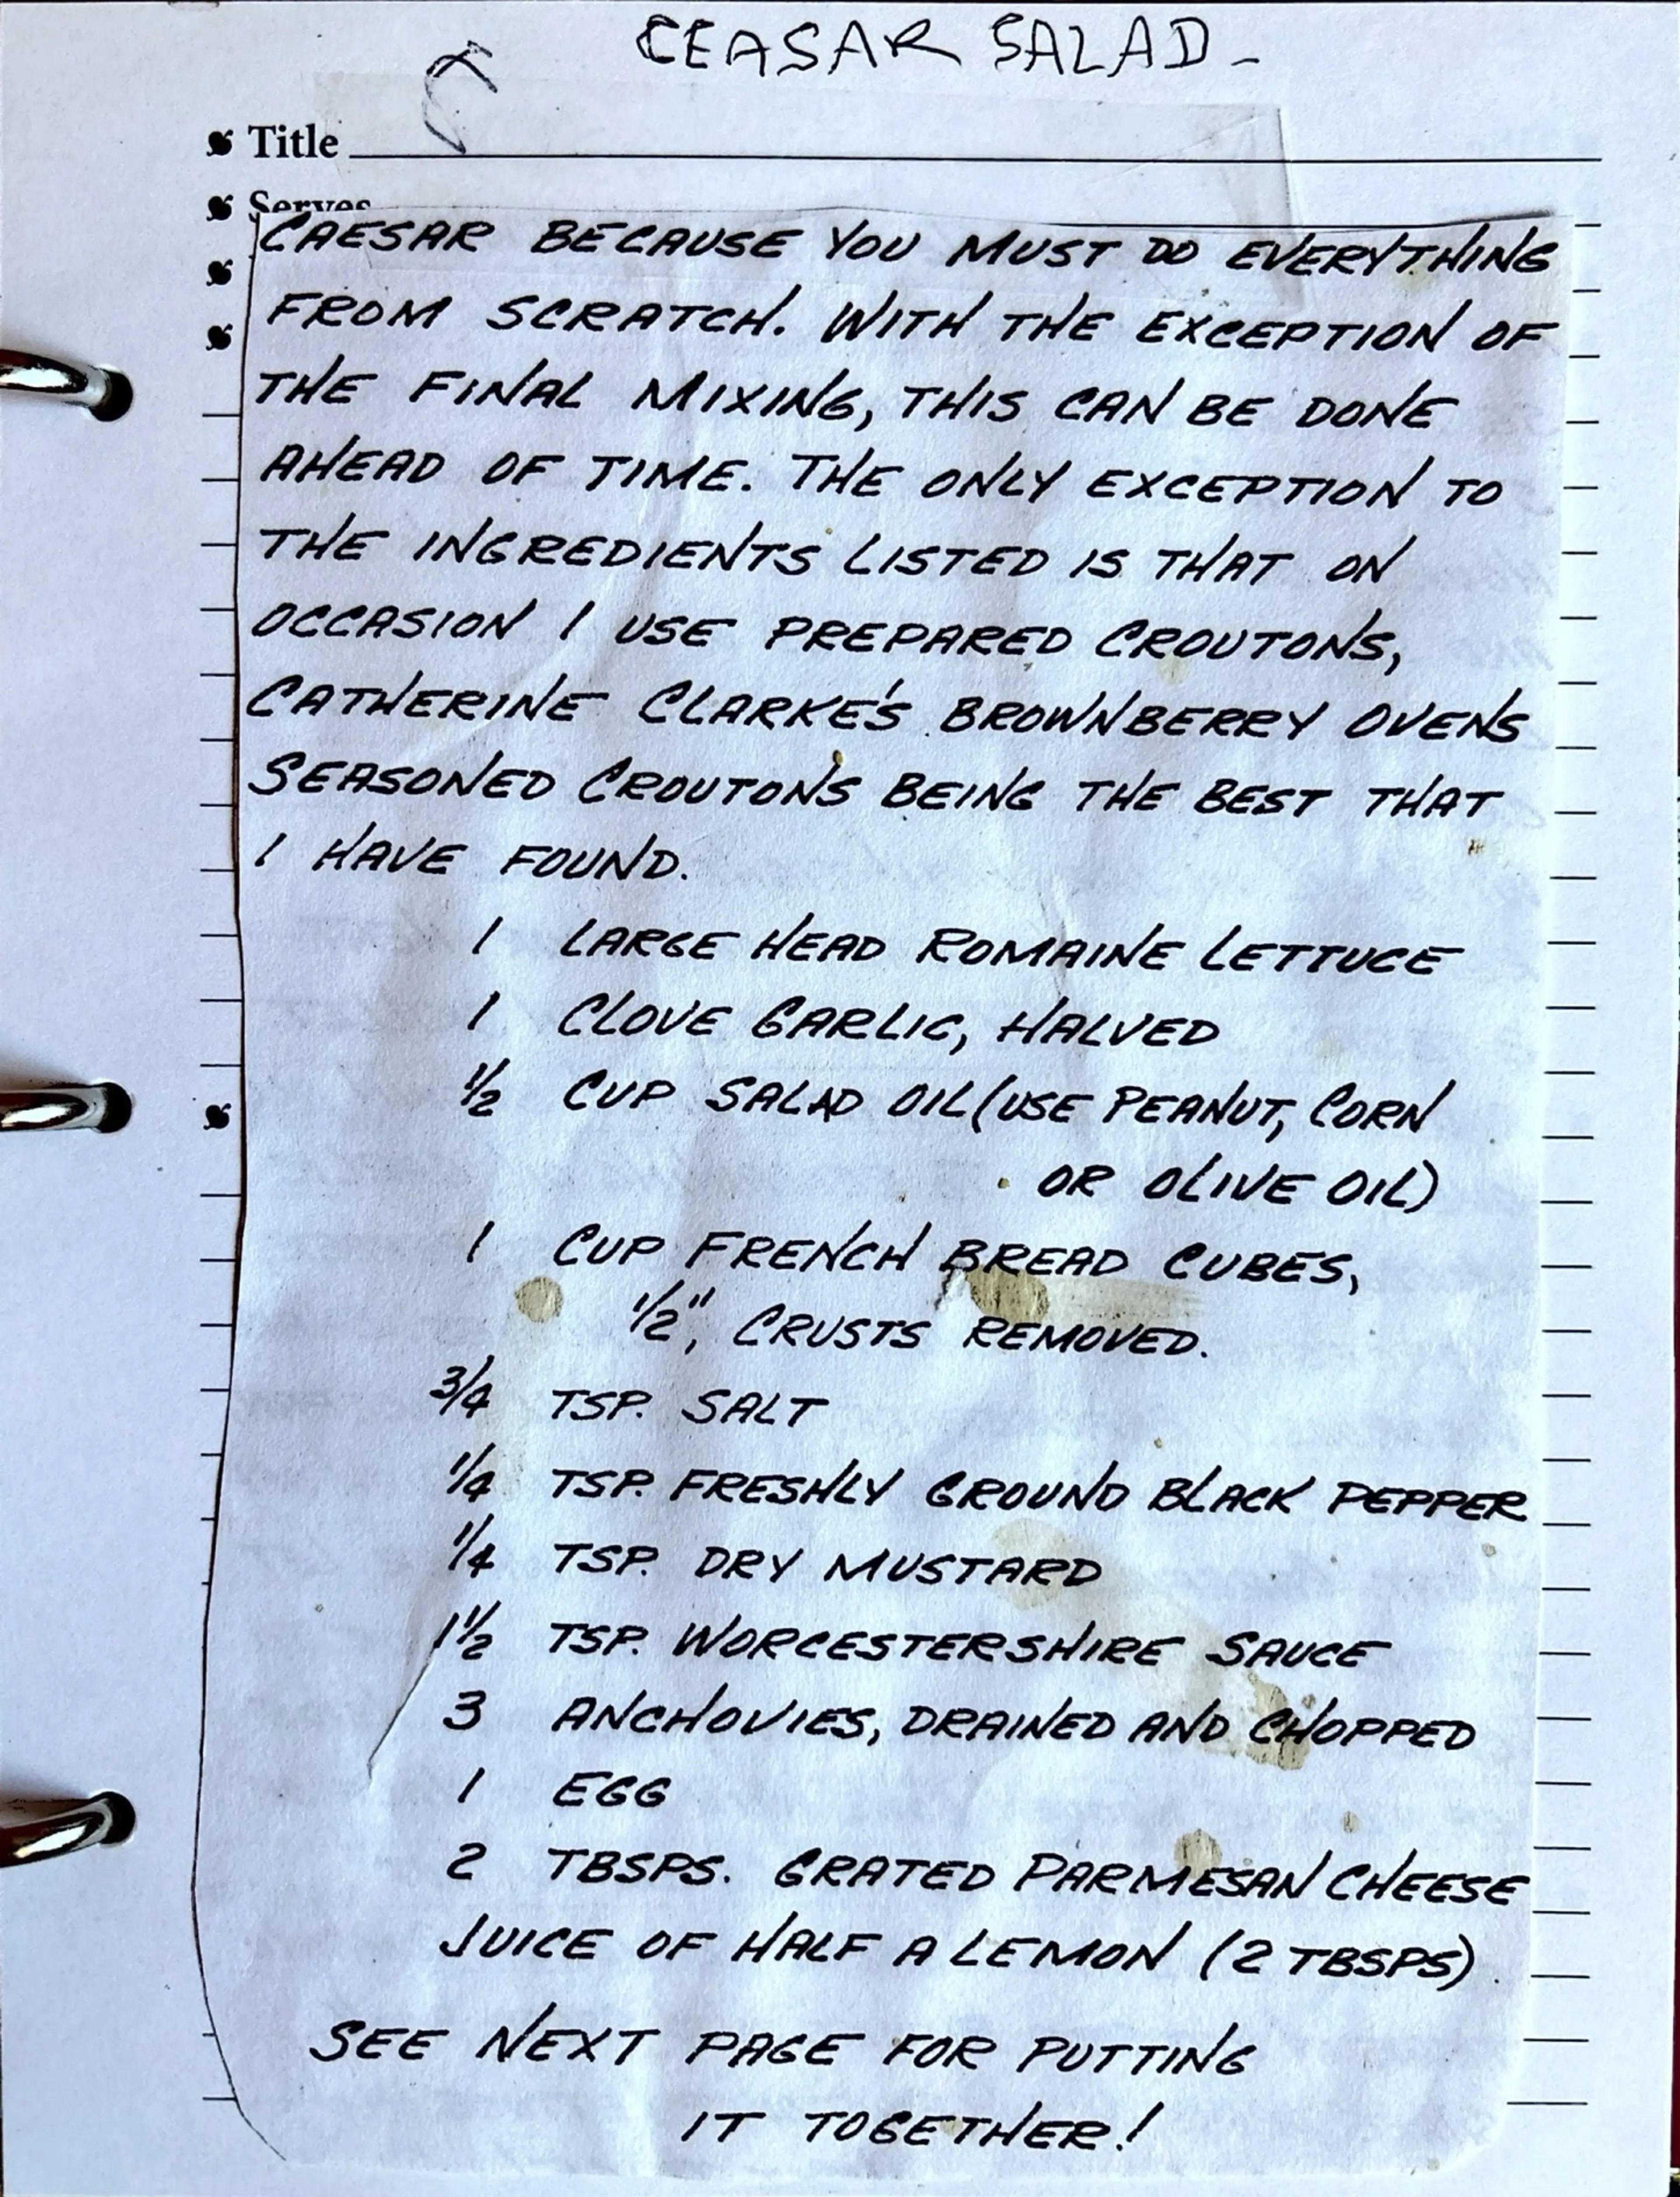 CEASAR SALAD -
Title
Serves
CAESAR BECAUSE YOU MUST DO EVERYTHING
FROM SCRATCH. WITH THE EXCEPTION OF
THE FINAL MIXING, THIS CAN BE DONE
AHEAD OF TIME. THE ONLY EXCEPTION TO
THE INGREDIENTS LISTED IS THAT ON
OCCASION I USE PREPARED CROUTONS,
CATHERINE CLARKE'S BROWNBERRY OVENS
SEASONED CROUTONS BEING THE BEST THAT
I HAVE FOUND.
1 LARGE HEAD ROMAINE LETTUCE
1 CLOVE GARLIC, HALVED
1/2 CUP SALAD OIL (USE PEANUT, CORN
OR OLIVE OIL)
1 CUP FRENCH BREAD CUBES,
1/2", CRUSTS REMOVED.
3/4 TSP. SALT
1/4 TSP. FRESHLY GROUND BLACK PEPPER
1/4 TSP. DRY MUSTARD
1 1/2 TSP. WORCESTERSHIRE SAUCE
3 ANCHOVIES, DRAINED AND CHOPPED
1 EGG
2 TBSPS. GRATED PARMESAN CHEESE
JUICE OF HALF A LEMON (2 TBSPS)
SEE NEXT PAGE FOR PUTTING
IT TOGETHER!